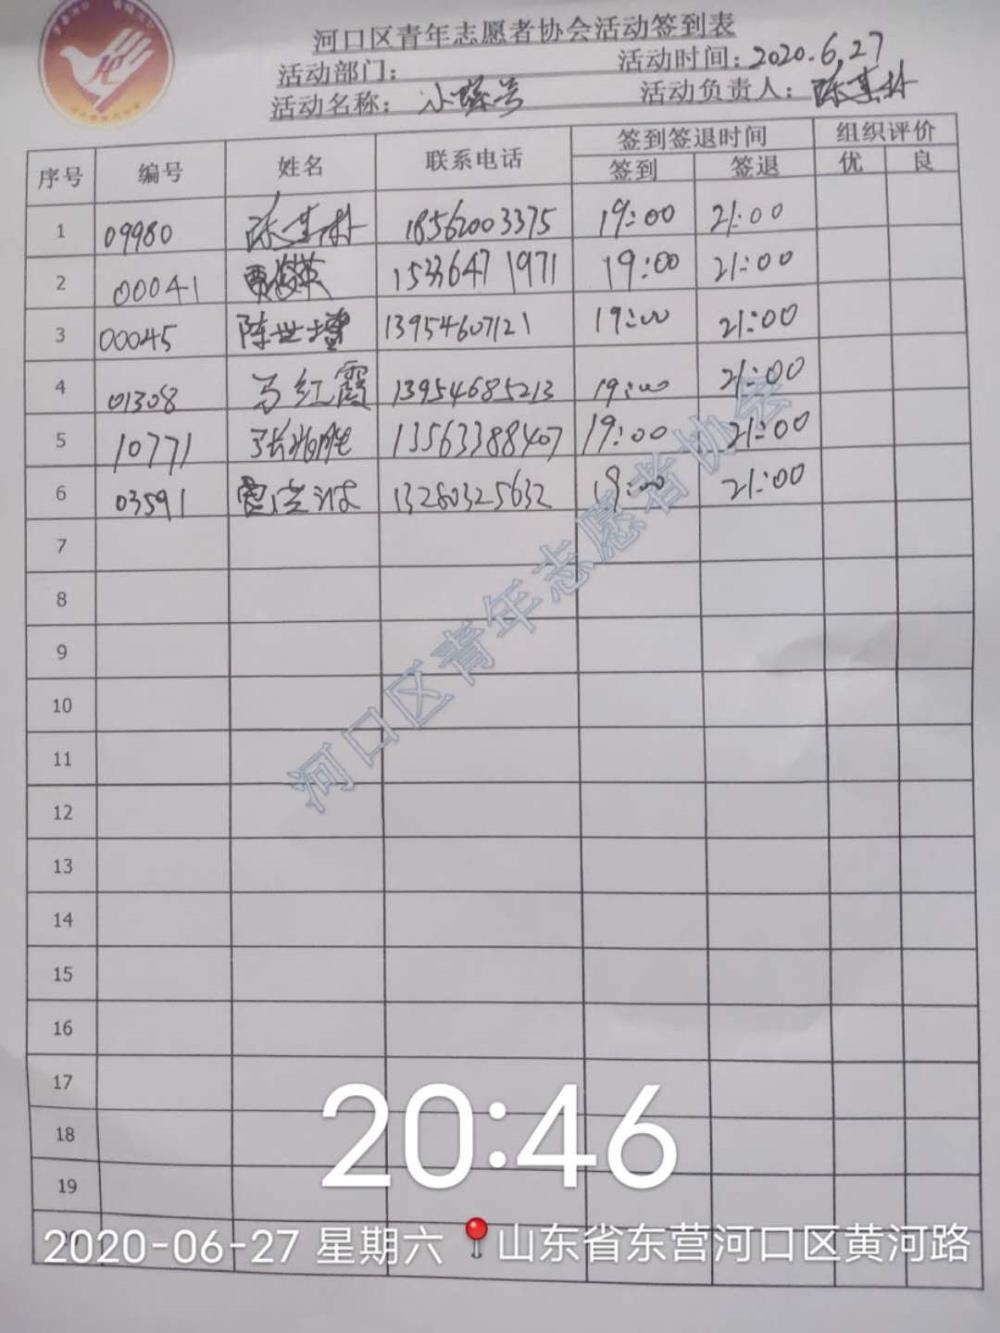 河口区青年志愿者协会活动签到表
活动部门： 活动时间：2020.6.27
活动名称： 活动负责人：陈其林
序号 编号 姓名 联系电话 签到签退时间 组织评价
签到 签退 优 良
1 09980 陈其林 18562003375 19:00 21:00
2 00041 15336471971 19:00 21:00
3 00045 陈世增 13954607121 19:00 21:00
4 01308 马红霞 13954685213 19:00 21:00
5 10771 13563388407 19:00 21:00
6 03591 13280325632 19:00 21:00
7
8
9
10
11
12
13
14
15
16
17
18
19
河口区青年志愿者协会
20:46
2020-06-27 星期六 山东省东营河口区黄河路